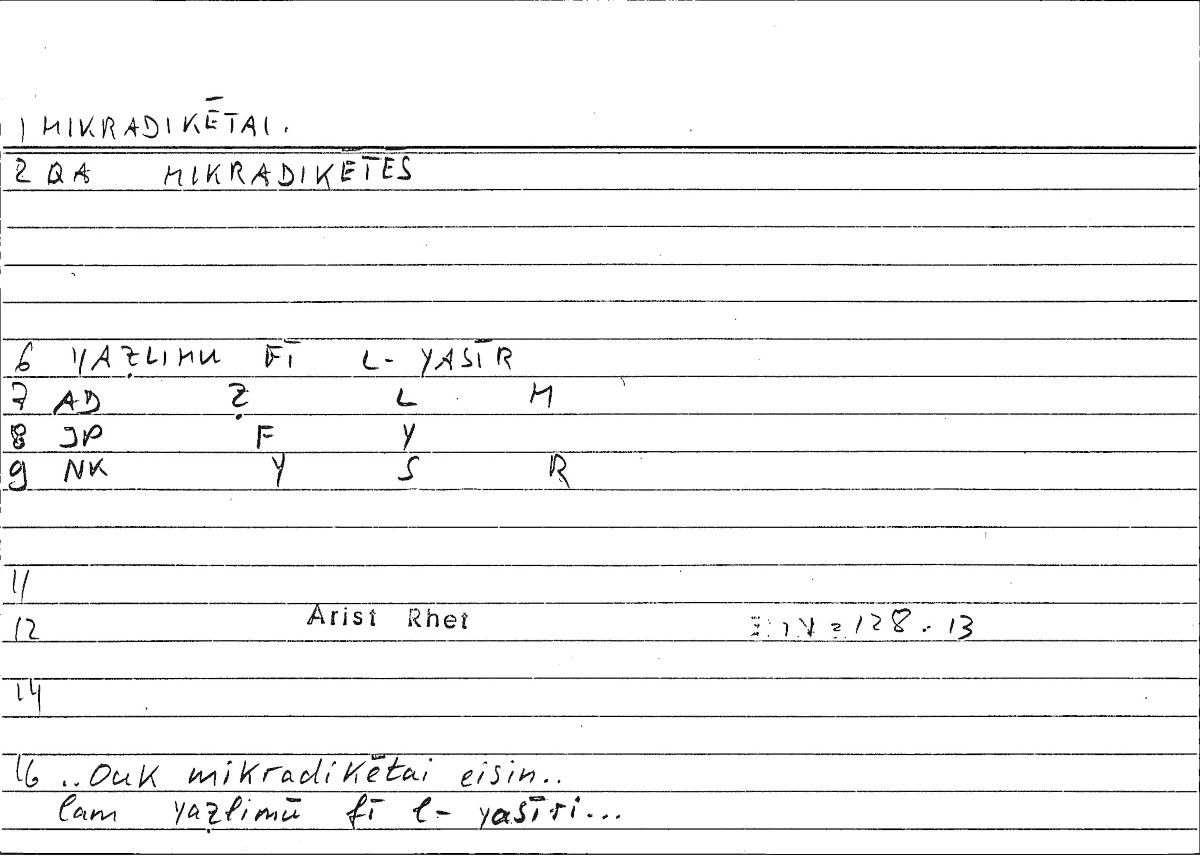 1 MIKRADIKĒTAI.
2 QA MIKRADIKĒTĒS
6 YAẒLIMU FĪ L- YASĪR
7 AD Ẓ L M
8 JP F Y
9 NK Y S R
11
12 Arist Rhet 128.13
14
16 ..Ouk mikradikētai eisin..
lam yaẓlimū fī l- yasīri...